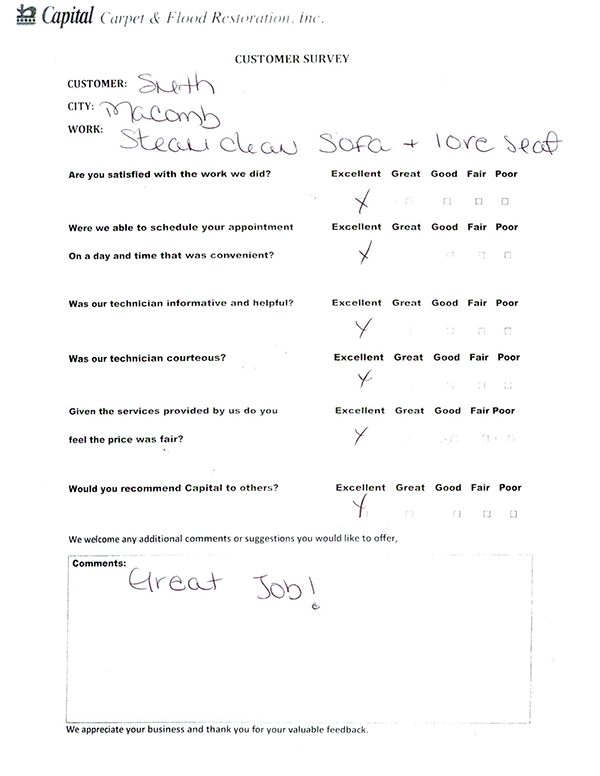 Capital Carpet & Flood Restoration, Inc.
CUSTOMER SURVEY
CUSTOMER: Smith
CITY: Macomb
WORK: Steam clean Sofa + love seat
Are you satisfied with the work we did? Excellent Great Good Fair Poor
X
Were we able to schedule your appointment Excellent Great Good Fair Poor
On a day and time that was convenient? X
Was our technician informative and helpful? Excellent Great Good Fair Poor
X
Was our technician courteous? Excellent Great Good Fair Poor
X
Given the services provided by us do you Excellent Great Good Fair Poor
feel the price was fair? X
Would you recommend Capital to others? Excellent Great Good Fair Poor
X
We welcome any additional comments or suggestions you would like to offer,
Comments:
Great Job!
We appreciate your business and thank you for your valuable feedback.